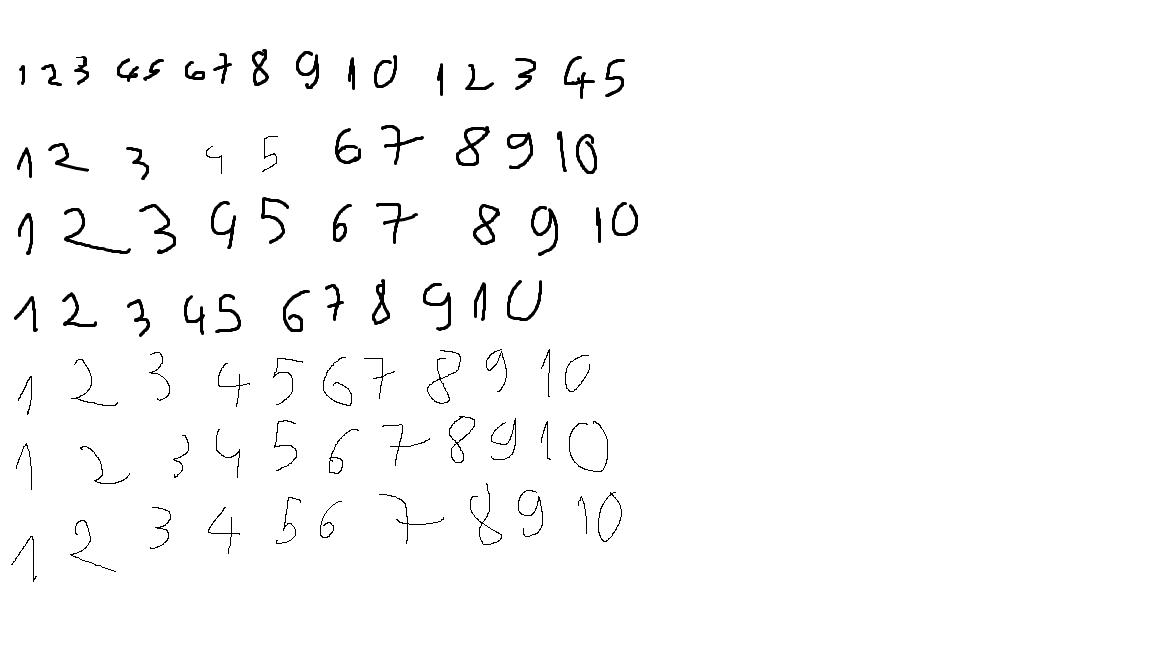 1 2 3 4 5 6 7 8 9 10 1 2 3 4 5
1 2 3 4 5 6 7 8 9 10
1 2 3 4 5 6 7 8 9 10
1 2 3 4 5 6 7 8 9 10
1 2 3 4 5 6 7 8 9 10
1 2 3 4 5 6 7 8 9 10
1 2 3 4 5 6 7 8 9 10